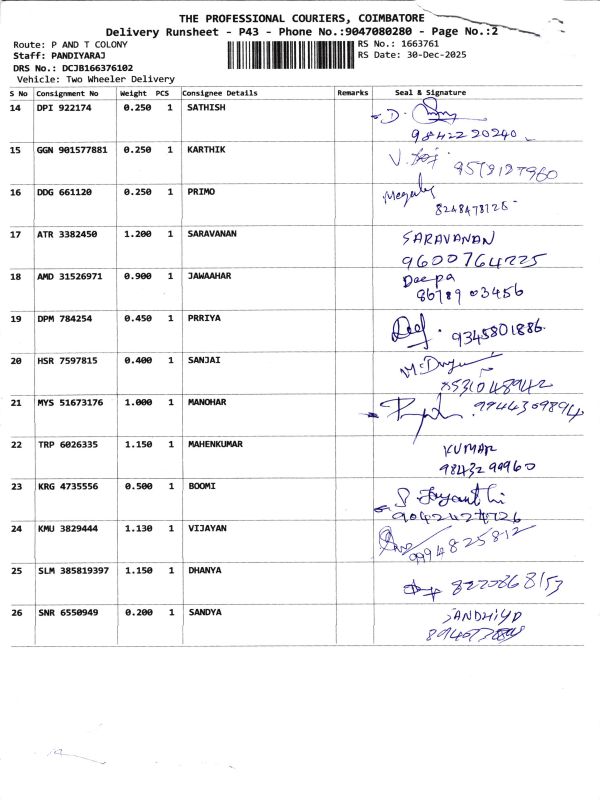 THE PROFESSIONAL COURIERS, COIMBATORE
Delivery Runsheet - P43 - Phone No.:9047080280 - Page No.:2
Route: P AND T COLONY
RS No.: 1663761
Staff: PANDIYARAJ
RS Date: 30-Dec-2025
DRS No.: DCJB166376102
Vehicle: Two Wheeler Delivery
S No Consignment No Weight PCS Consignee Details Remarks Seal & Signature
14 DPI 922174 0.250 1 SATHISH
9842220240
15 GGN 901577881 0.250 1 KARTHIK
16 DDG 661120 0.250 1 PRIMO
8248478126
17 ATR 3382450 1.200 1 SARAVANAN SARAVANAN
9600764225
18 AMD 31526971 0.900 1 JAWAAHAR Deepa
86789 03456
19 DPM 784254 0.450 1 PRRIYA
9345801886
20 HSR 7597815 0.400 1 SANJAI
21 MYS 51673176 1.000 1 MANOHAR
9944309894
22 TRP 6026335 1.150 1 MAHENKUMAR KUMAR
98432 99960
23 KRG 4735556 0.500 1 BOOMI
24 KMU 3829444 1.130 1 VIJAYAN
9994825812
25 SLM 385819397 1.150 1 DHANYA
8220868153
26 SNR 6550949 0.200 1 SANDYA